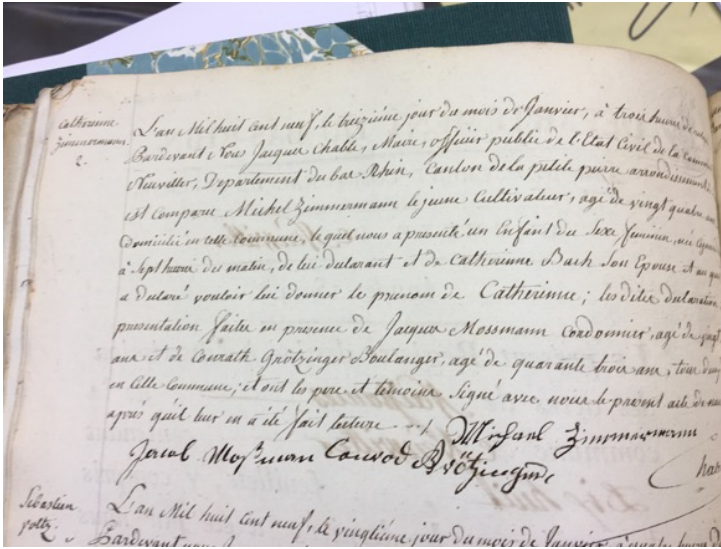 Catherinne
Zimmermann.
2.
L'an Mil huit cent neuf, le treizième jour du mois de Janvier, à trois heures de
Pardevant Nous Jacques Chable, Maire, officier public de l'Etat Civil de la Commune
Neuviller, Departement du bas Rhin, Canton de la petite pierre arrondissement
est comparu Michel Zimmermann le jeune Cultivateur, agé de vingt quatre ans
domicilié en cette Commune, le quel nous a presenté un Enfant du Sexe feminin, née
à Sept heures du matin, de lui declarant et de Catherinne Bach Son Epouse et au quel
a declaré vouloir lui donner le prenom de Catherinne; les dites declaration
presentation faites en presence de Jacques Mossmann Cordonnier, agé de
ans et de Conrath Grötzinger Boulanger, agé de quarante trois ans, tous
en cette Commune; et ont les pere et temoins Signé avec nous le present acte de
après qu'il leur en a été fait lecture
Michael Zimmermann
Jacob Mossman Conrod Grötzinger
Sebastien
Voltz.
L'an Mil huit Cent neuf, le vingtième jour du mois de Janvier, à quatre heures
Pardevant nous